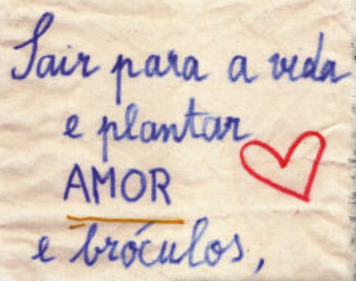 Sair para a vida
e plantar
AMOR
e bróculos,